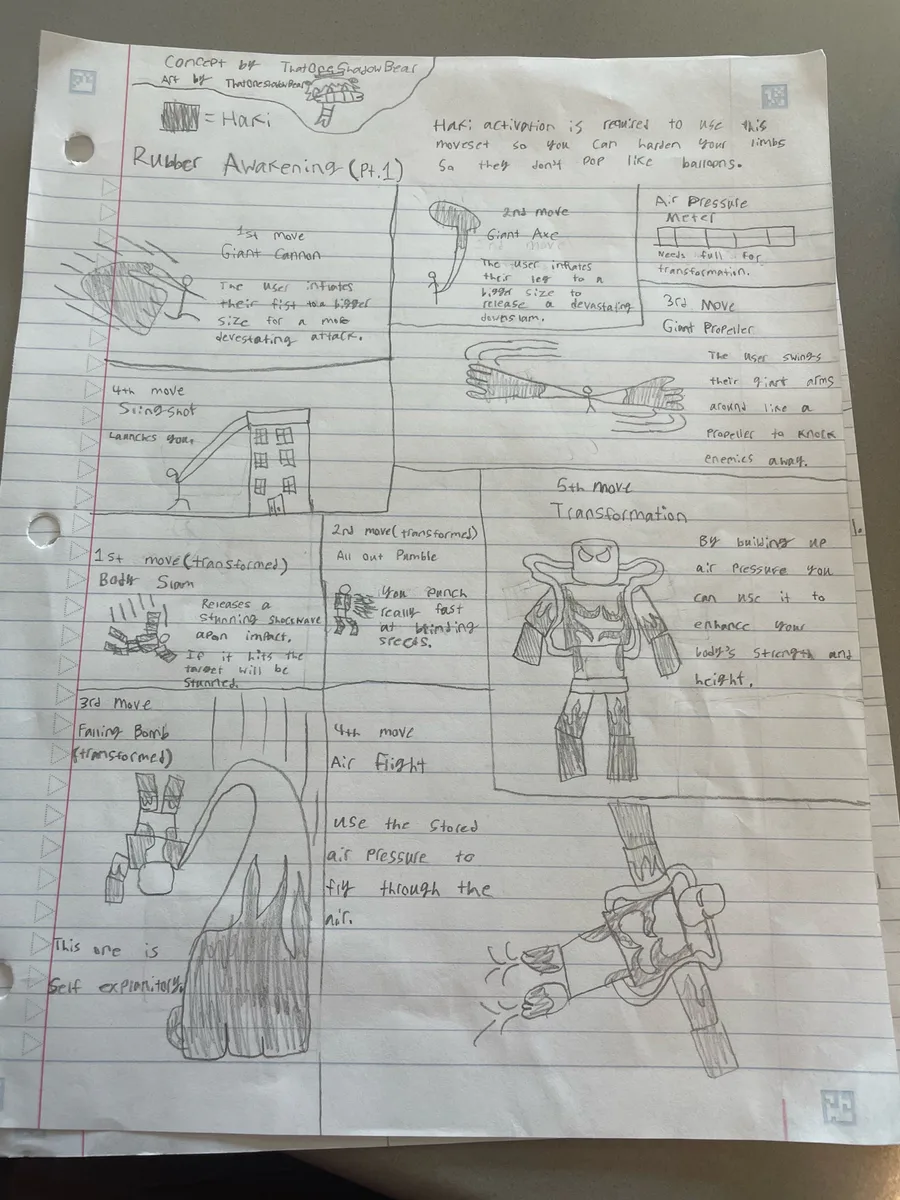 Concept by ThatOneShadowBear
Art by ThatOneShadowBear
= Haki
Haki activation is required to use this
moveset so you can harden your limbs
so they don't pop like balloons.
Rubber Awakening (Pt.1)
1st move
Giant Cannon
The user inflates
their fist to a bigger
size for a more
devestating attack.
2nd move
Giant Axe
The user inflates
their leg to a
bigger size to
release a devastating
downslam.
Air Pressure
Meter
Needs full for
transformation.
3rd Move
Giant Propeller
The user swings
their giant arms
around like a
Propeller to knock
enemies away.
4th move
Slingshot
Launches you.
5th move
Transformation
By building up
air pressure you
can use it to
enhance your
body's strength and
height.
1st move (transformed)
Body Slam
Releases a
stunning shockwave
apon impact.
If it hits the
target will be
stunned.
2nd move (transformed)
All out Pumble
You punch
really fast
at blinding
speeds.
3rd move
Falling Bomb
(transformed)
This one is
self explanitory.
4th move
Air flight
use the stored
air pressure to
fly through the
air.